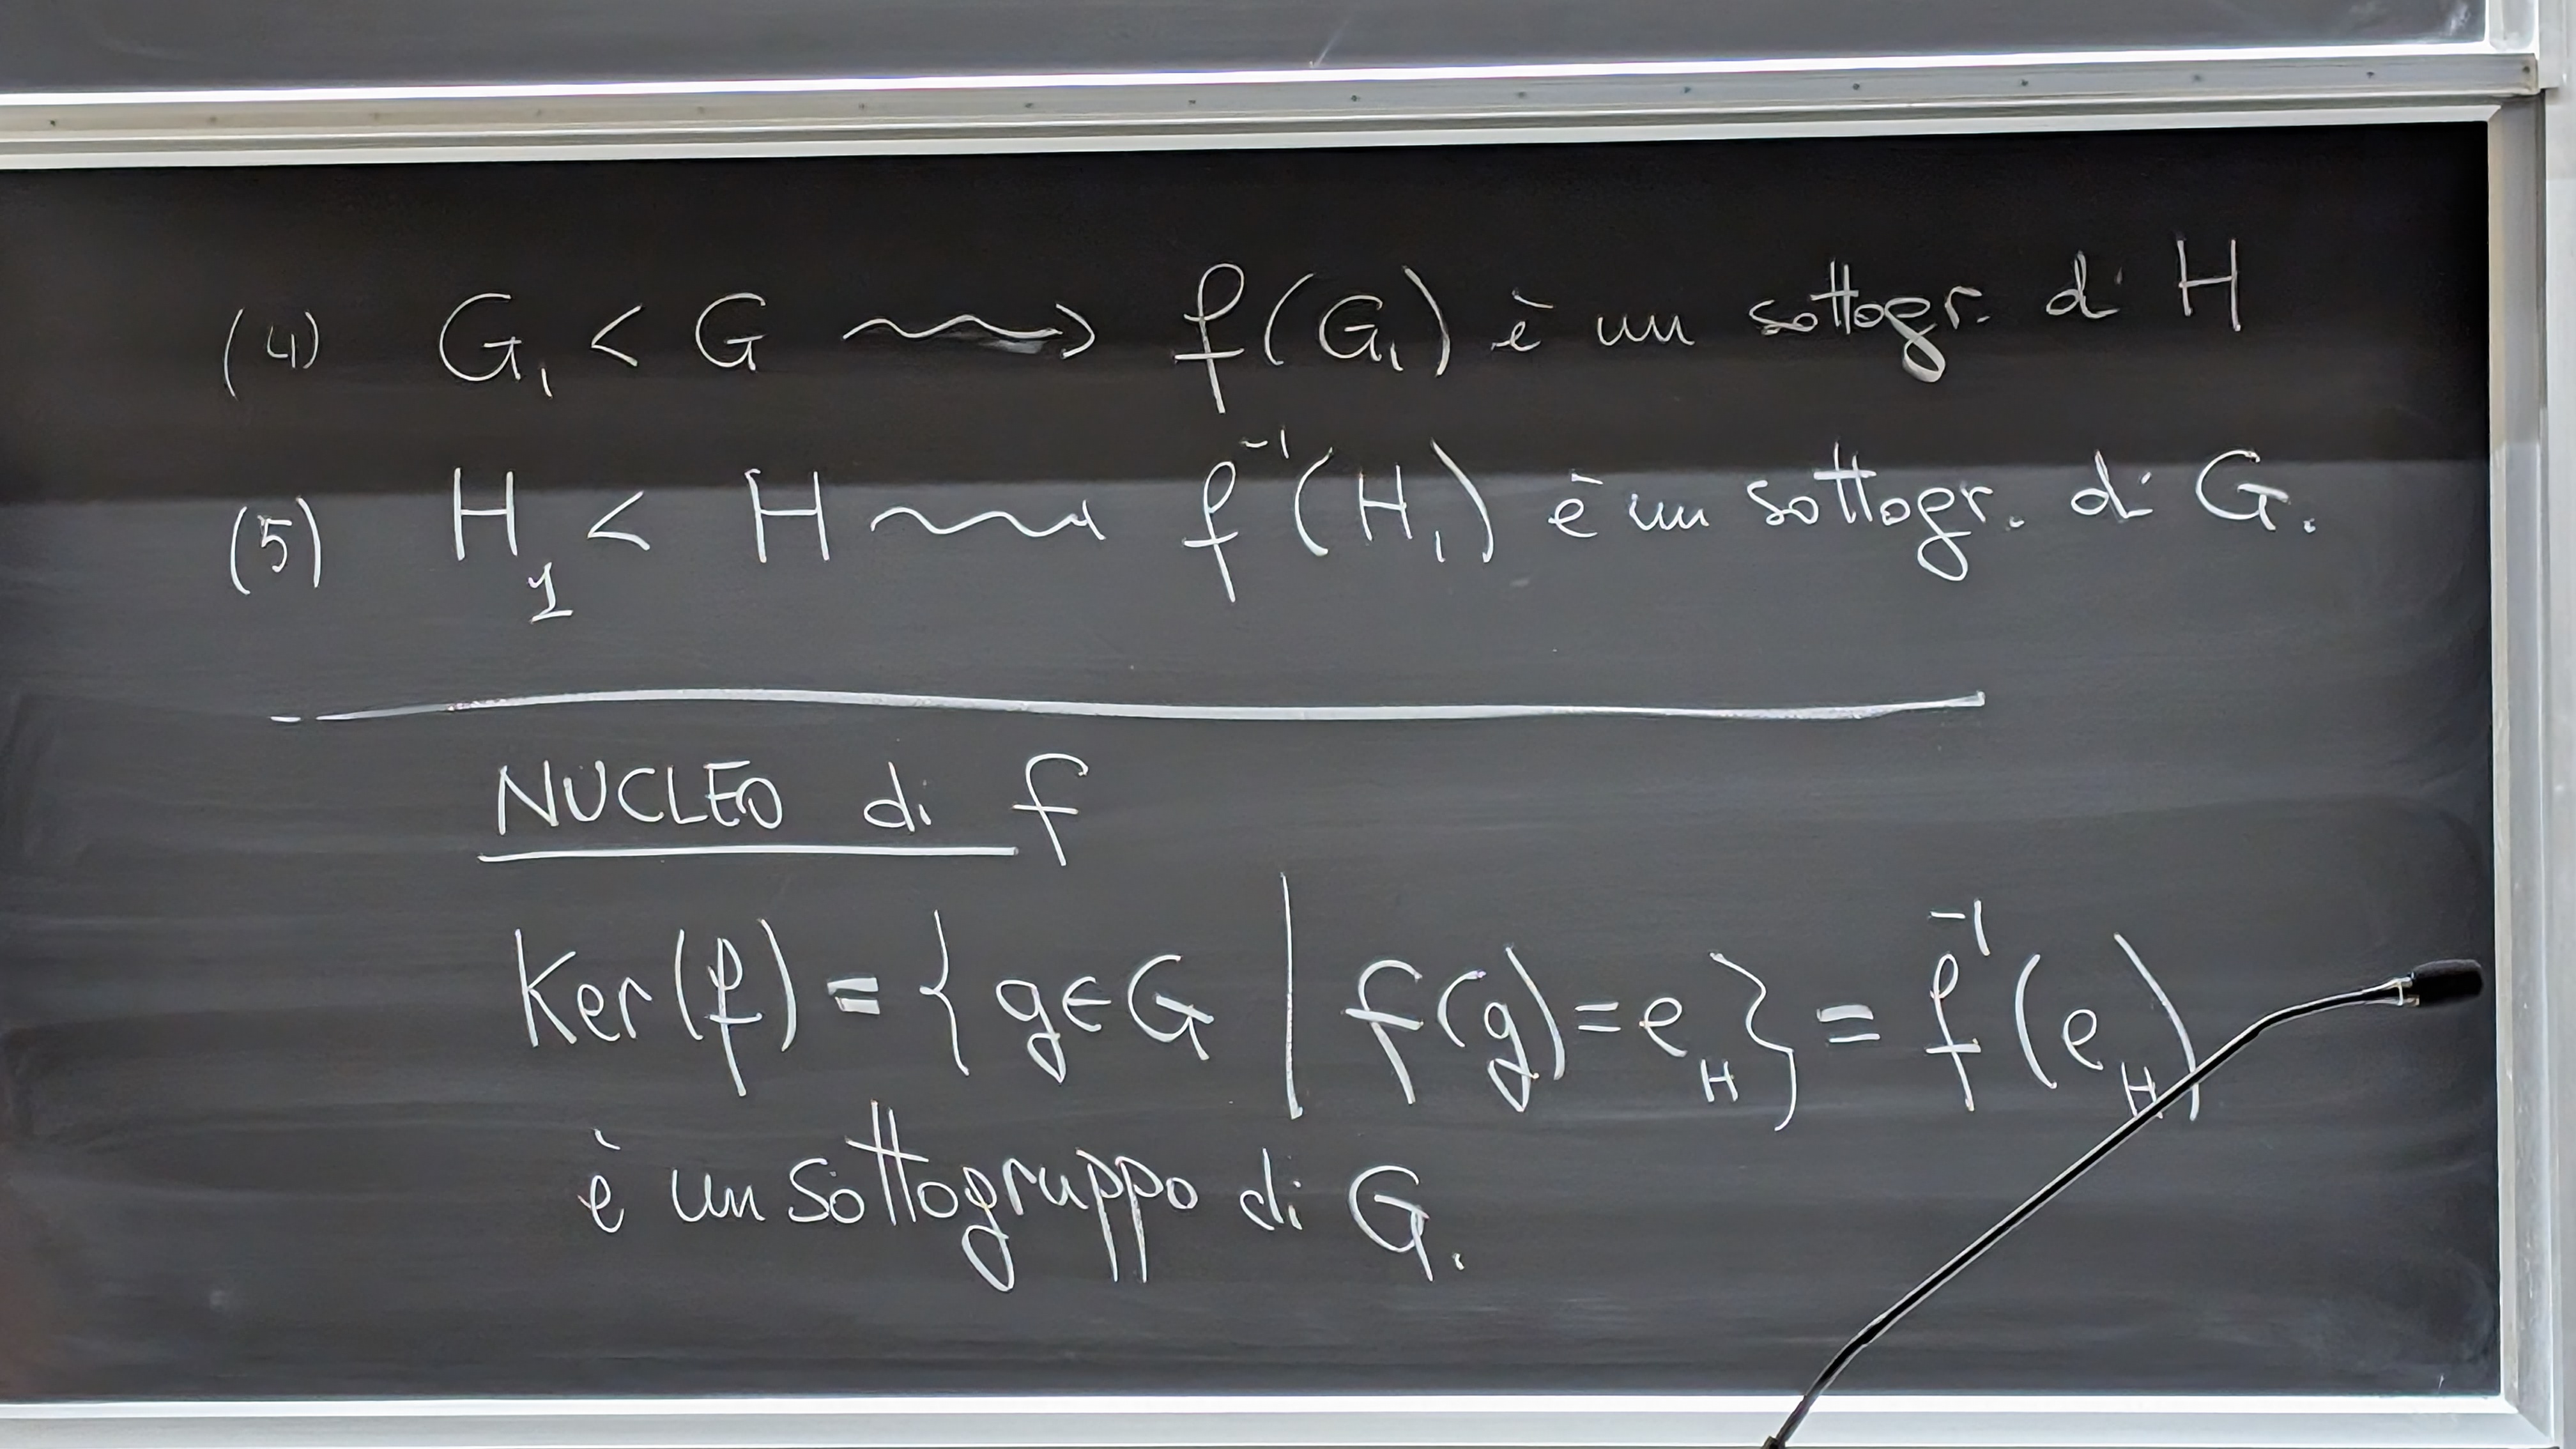 (4) G₁ < G ⇝ f(G₁) è un sottogr. di H
(5) H₁ < H ⇝ f⁻¹(H₁) è un sottogr. di G.
NUCLEO di f
Ker(f) = { g∈G | f(g)=e_H } = f⁻¹(e_H)
è un sottogruppo di G.